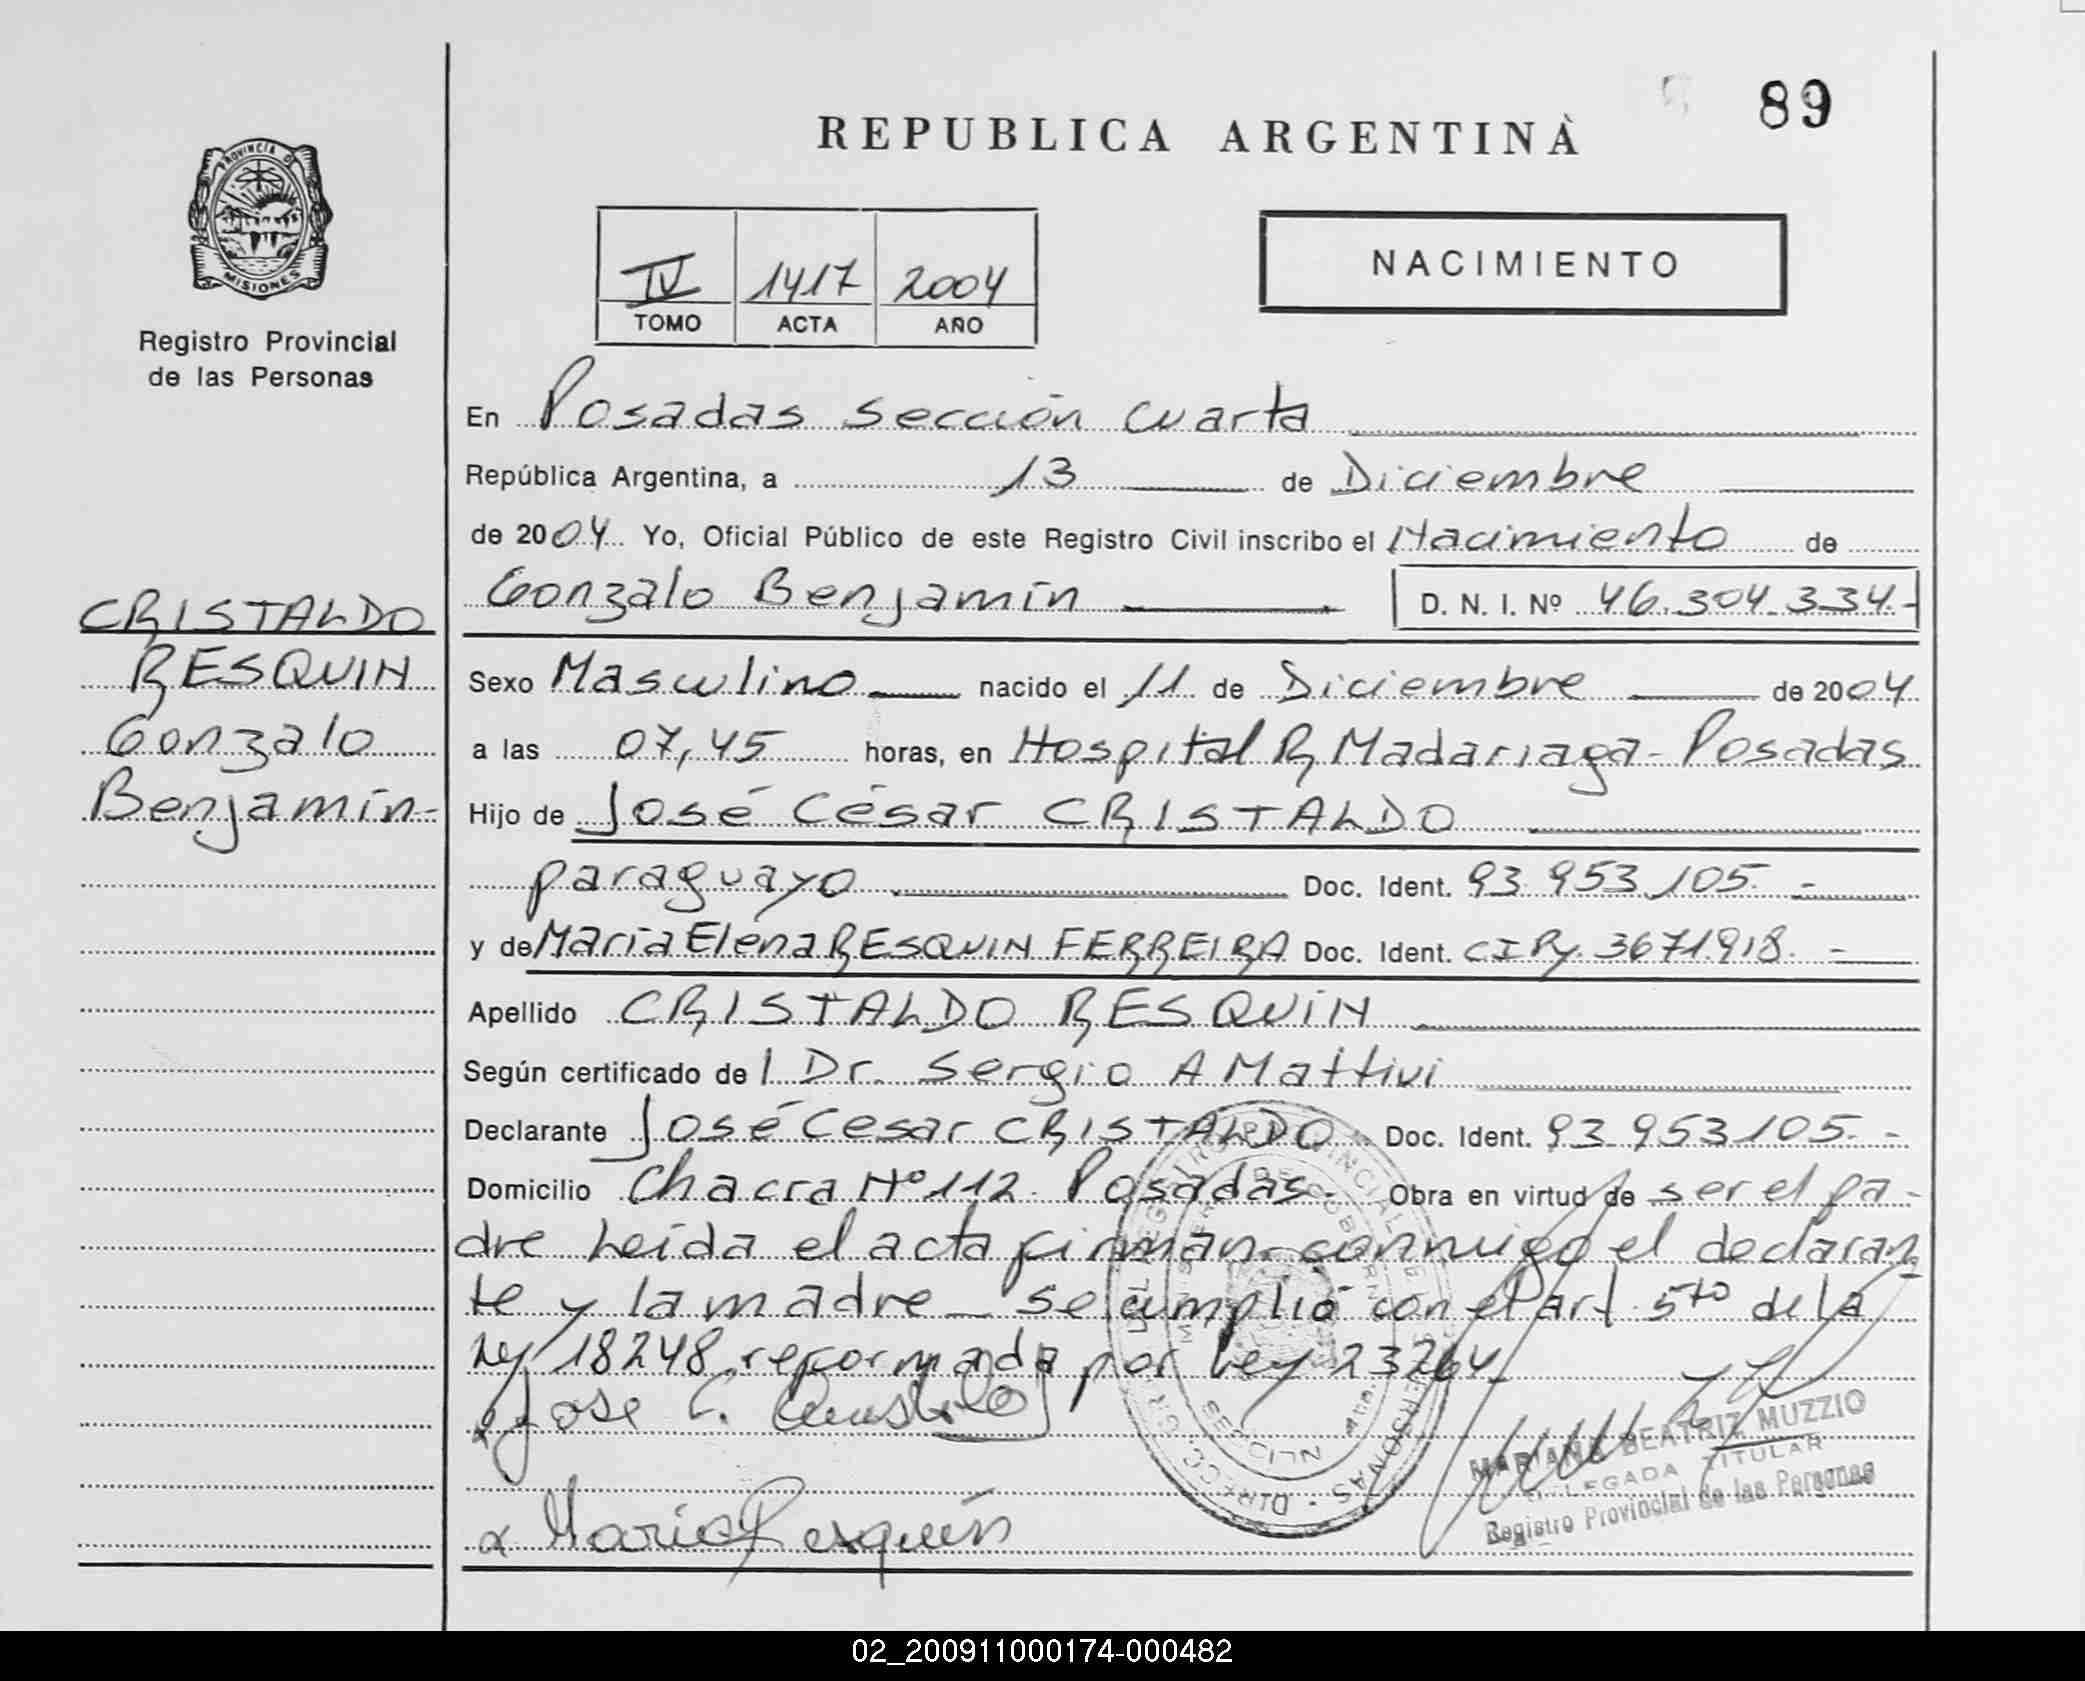 89
REPUBLICA ARGENTINA
PROVINCIA DE
MISIONES
Registro Provincial
de las Personas
IV 1417 2004
TOMO ACTA AÑO
NACIMIENTO
En Posadas Sección Cuarta
República Argentina, a 13 de Diciembre
de 2004 Yo, Oficial Público de este Registro Civil inscribo el Nacimiento de
Gonzalo Benjamín D. N. I. Nº 46.304.334.-
CRISTALDO
RESQUIN
Gonzalo
Benjamín-
Sexo Masculino nacido el 11 de Diciembre de 2004
a las 07,45 horas, en Hospital R Madariaga - Posadas
Hijo de José César CRISTALDO
paraguayo Doc. Ident. 93.953.105.-
y de María Elena RESQUIN FERREIRA Doc. Ident. CIPy. 3671.918.-
Apellido CRISTALDO RESQUIN
Según certificado del Dr. Sergio A Mattivi
Declarante José Cesar CRISTALDO Doc. Ident. 93.953.105.-
Domicilio Chacra Nº 112. Posadas.- Obra en virtud de ser el pa-
dre Leída el acta firman conmigo el declaran
te y la madre - se cumplió con el art. 5to de la
Ley 18248 reformada por Ley 23264
Jose C. Cristaldo
Maria Resquín
MARIANA BEATRIZ MUZZIO
DELEGADA TITULAR
Registro Provincial de las Personas
02_200911000174-000482